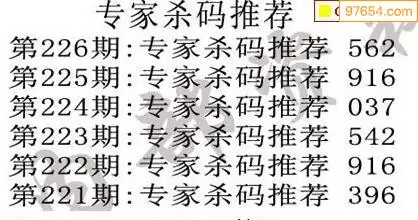 专家杀码推荐
97654.com
第226期:专家杀码推荐 562
第225期:专家杀码推荐 916
第224期:专家杀码推荐 037
第223期:专家杀码推荐 542
第222期:专家杀码推荐 916
第221期:专家杀码推荐 396